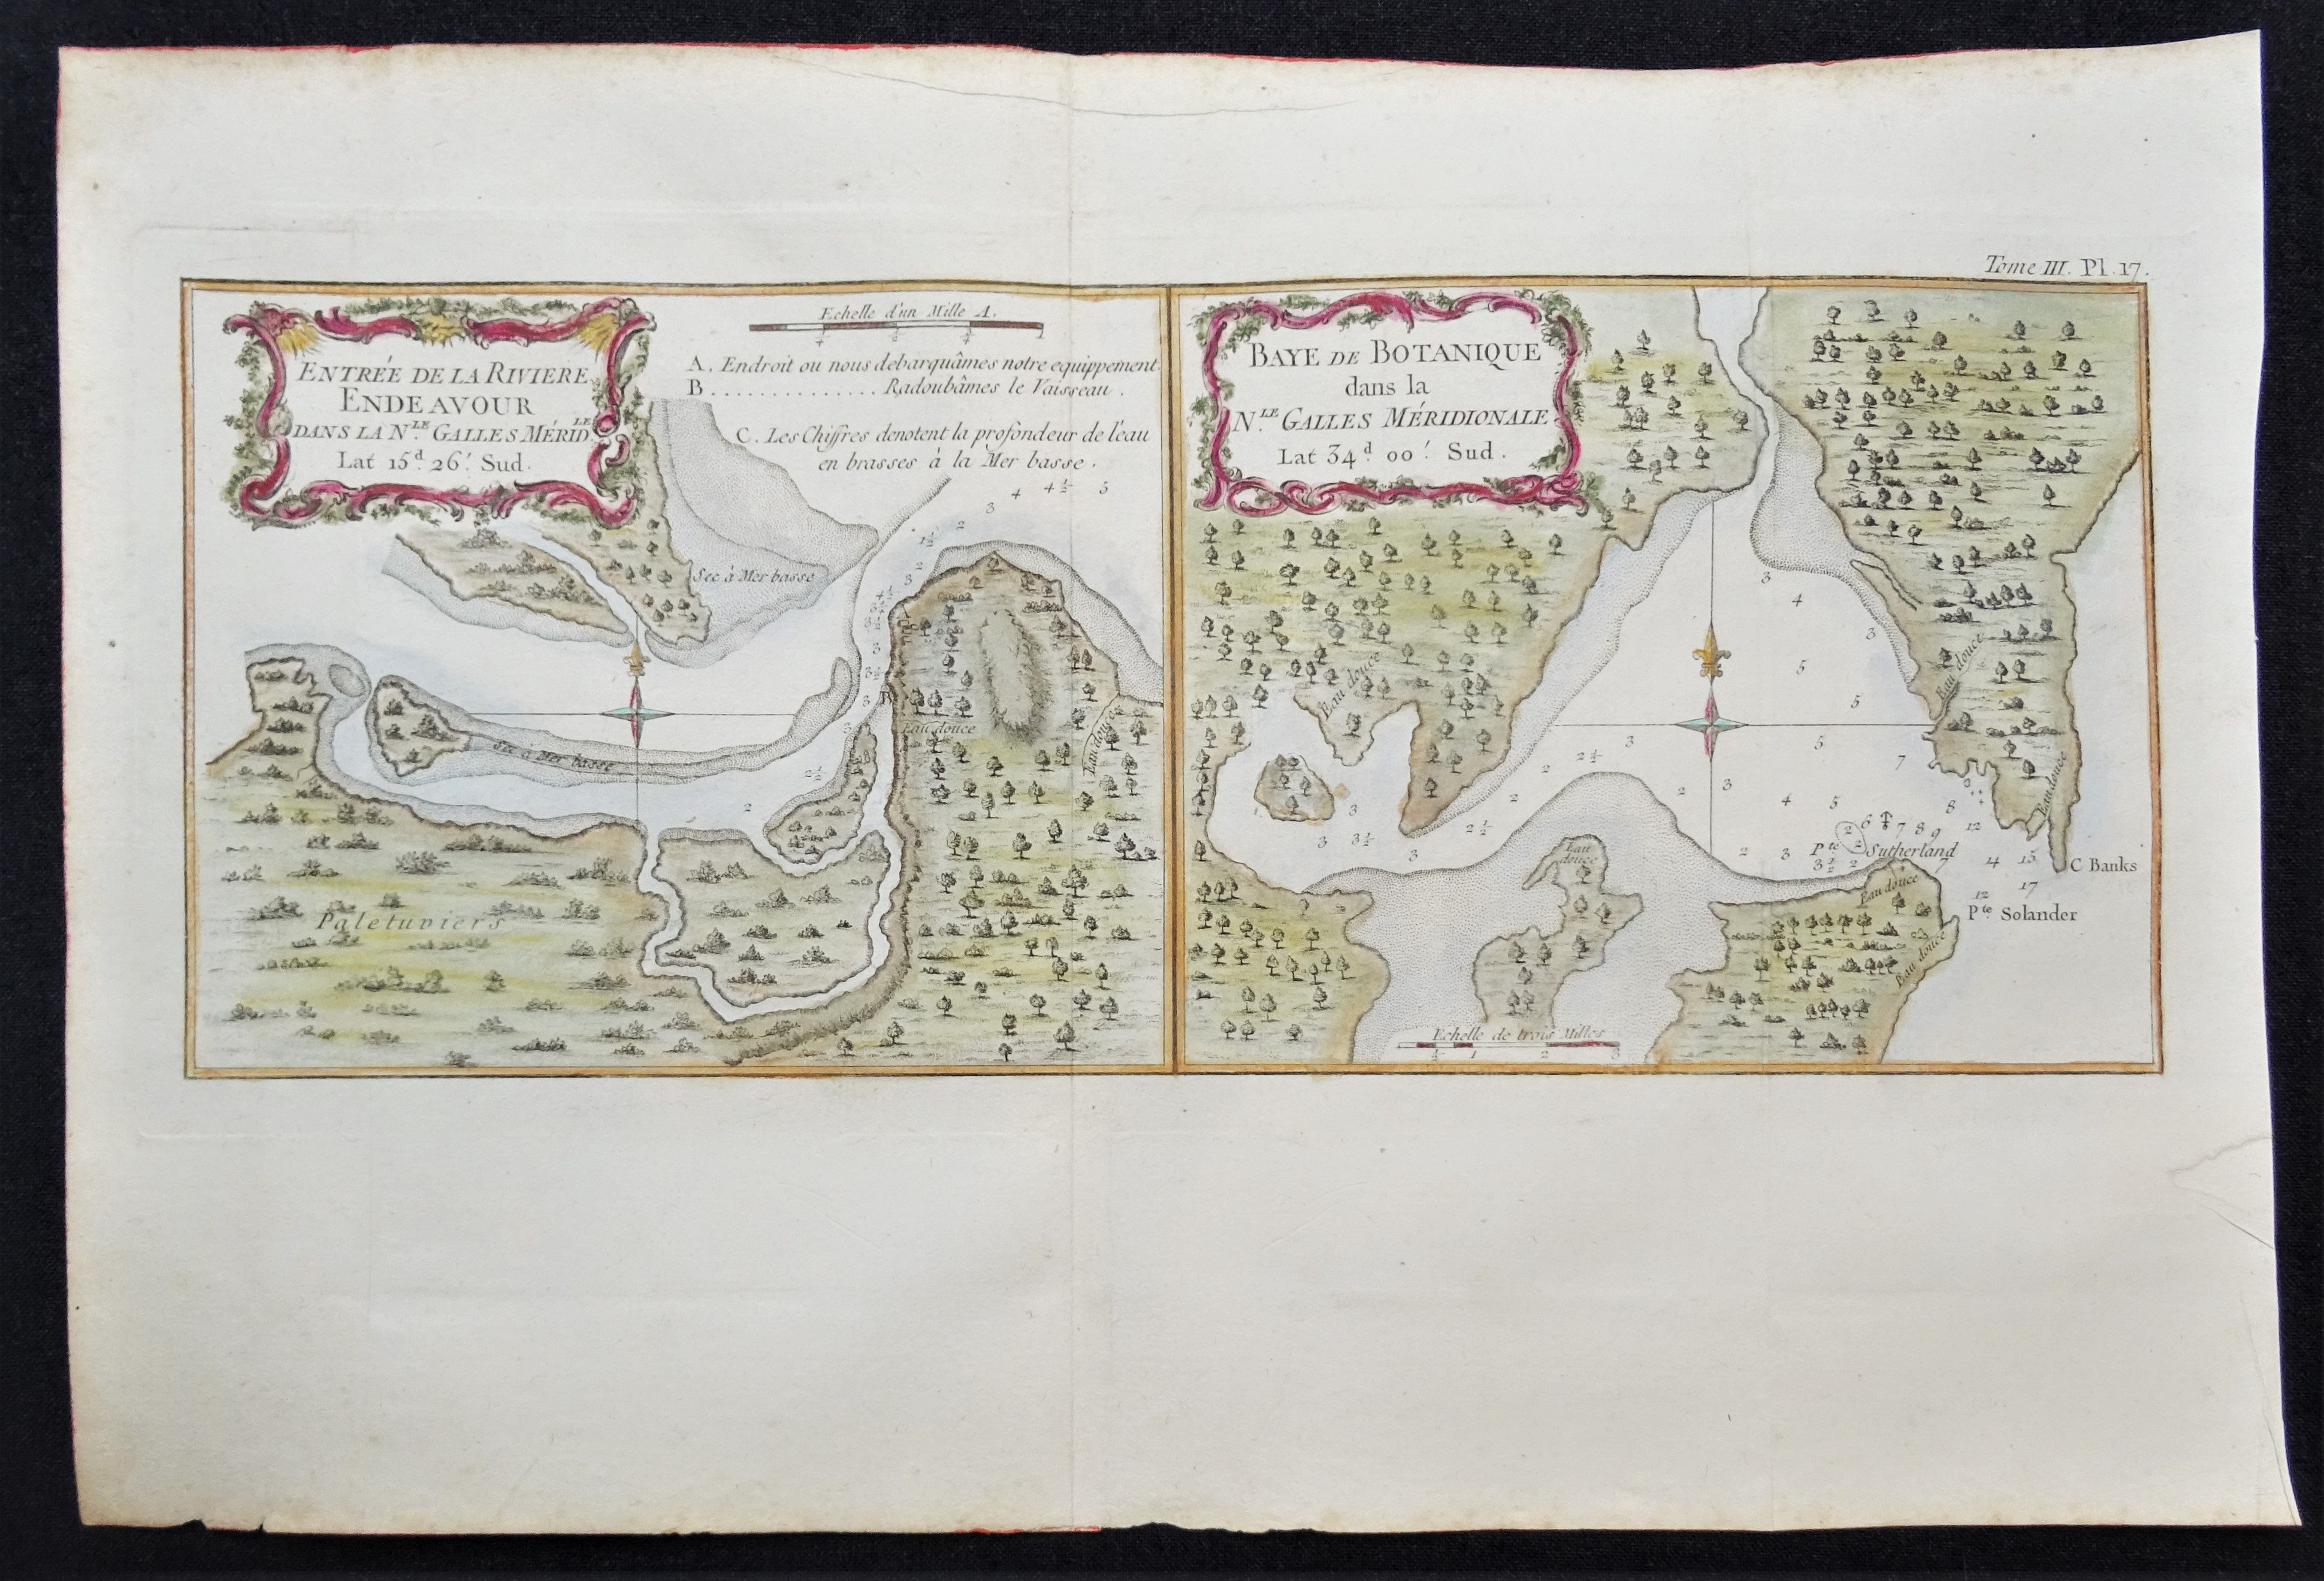 Tome III. Pl. 17.
ENTRÉE DE LA RIVIERE
ENDEAVOUR
DANS LA N.LE GALLES MÉRID.LE
Lat 15.d 26.' Sud.
Echelle d'un Mille A.
A. Endroit ou nous debarquâmes notre equippement
B .............. Radoubâmes le Vaisseau.
C. Les Chiffres denotent la profondeur de l'eau
en brasses à la Mer basse.
3 4 4½ 5
2
1½
2
3
Sec à Mer basse
3
3½
3
3
B
Eau douce
Eau douce
Sec à Mer basse
2½
2
Paletuviers
BAYE DE BOTANIQUE
dans la
N.LE GALLES MÉRIDIONALE
Lat 34.d 00.' Sud.
3
4
3
5
5
Eau douce
Eau douce
3 5
2½
2
7
2 3
2
4 5
8
Eau douce
3
2½
3 3½
3
6 7 8 9 12
2
2 3
3½ 2
P.te Sutherland
14 13
C Banks
17
12
P.te Solander
Eau douce
Eau douce
Eau douce
Echelle de trois Milles
1 2 3